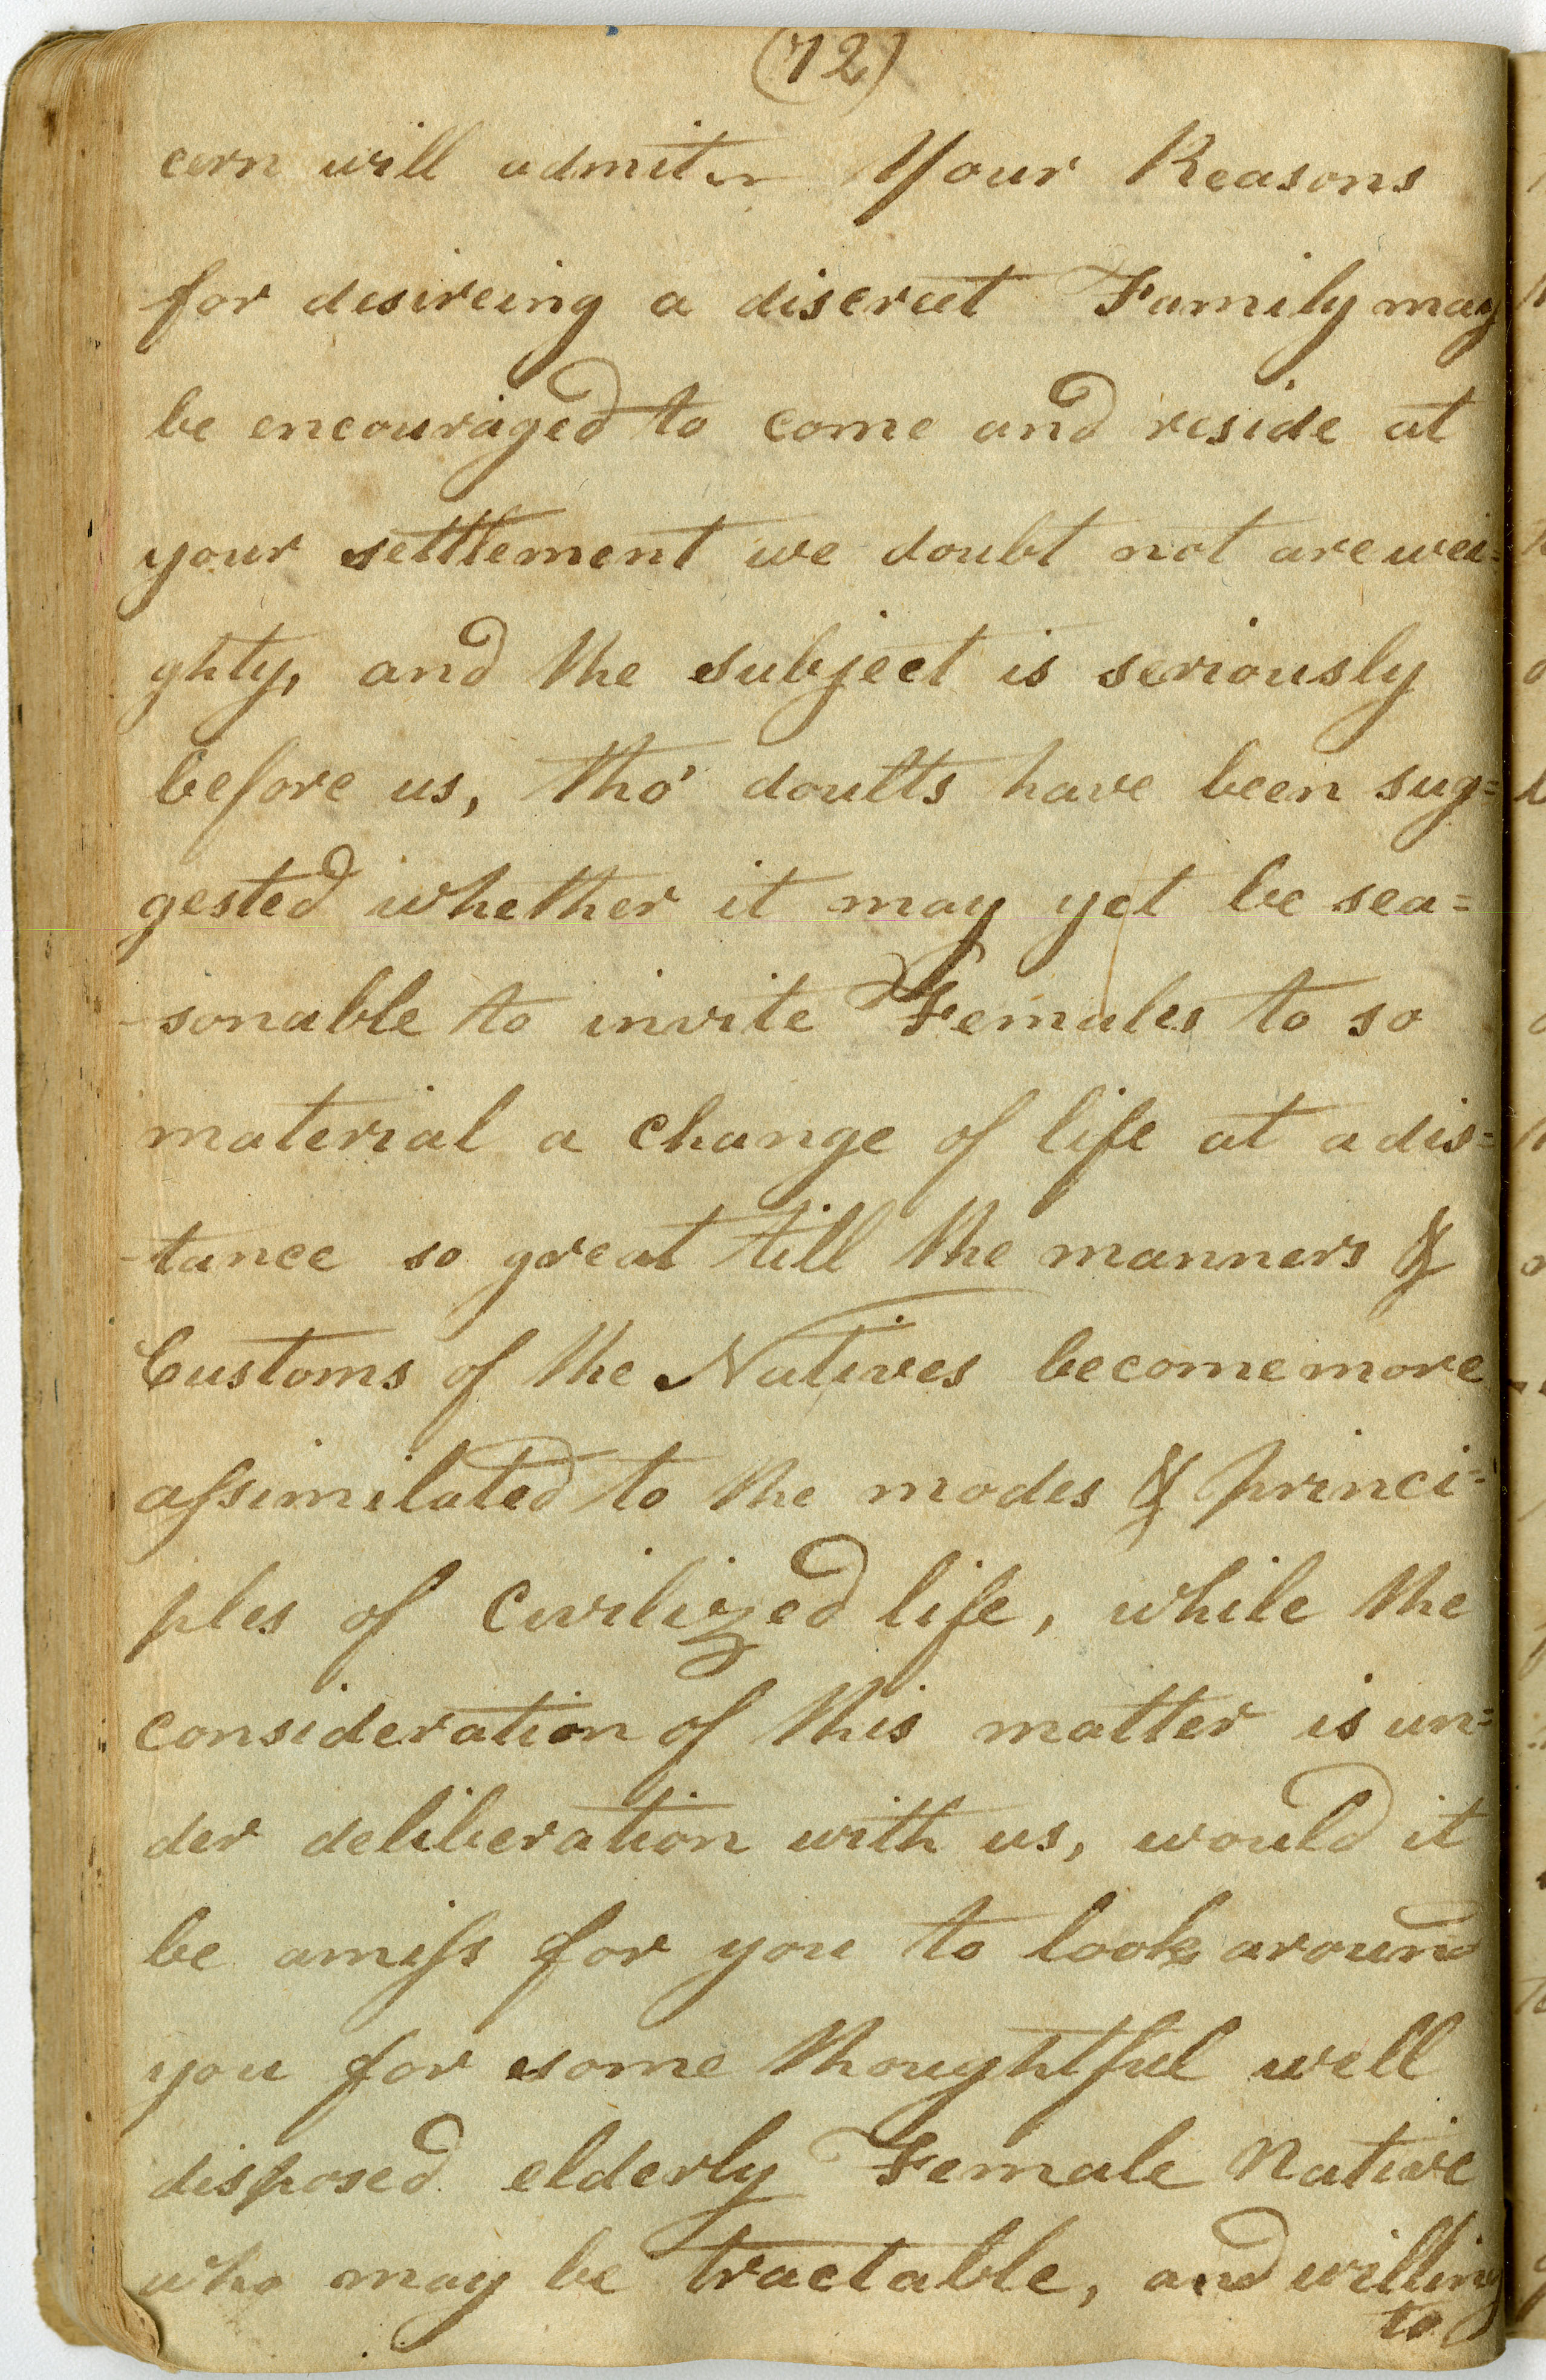 (72)
cern will admit. Your Reasons
for desireing a discreet Family may
be encouraged to come and reside at
your settlement we doubt not are wei=
ghty, and the subject is seriously
before us, tho' doults have been sug=
gested whether it may yet be sea=
sonable to invite Females to so
material a change of life at a dis=
tance so great till the manners &
Customs of the Natives become more
assimilated to the modes & princi=
ples of Civilized life, while the
consideration of this matter is un=
der deliberation with us, would it
be amiss for you to look around
you for some thoughtful well
disposed elderly Female Native
who may be tractable, and willing
to